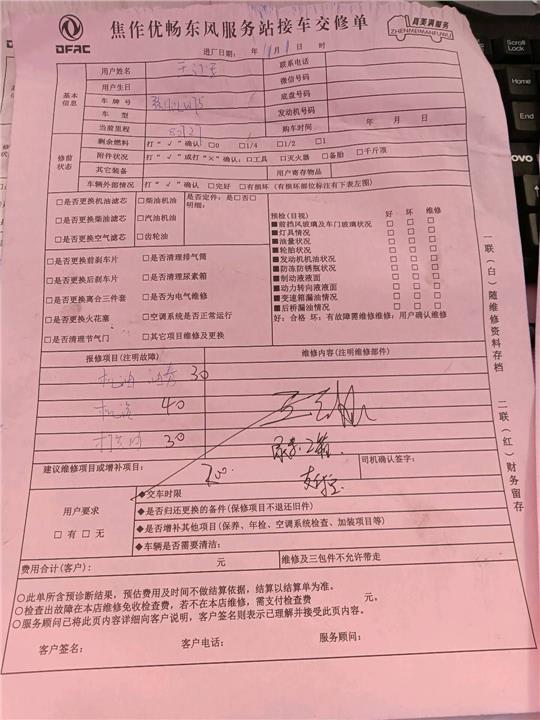 DFAC
焦作优畅东风服务站接车交修单
真美满服务
ZHENMEIMANFUWU
进厂日期： 年 1月 1日 时
基本信息
用户姓名
联系电话
用户生日
微信号码
车牌号
底盘号码
车 型
发动机号码
当前里程
购车时间 年 月 日
修前状态
剩余燃料 打“√”确认 □0 □1/4 □1/2 □1
附件状况 打“√”或打“×”确认：□工具 □灭火器 □备胎 □千斤顶
其它装备
用户寄存物品
车辆外部情况 打“√”确认 □完好 □有损坏（有损坏部位标注有下表左图）
□是否更换机油滤芯 □柴油机油 是否定件：是□否□
明细：
□是否更换柴油滤芯 □汽油机油
□是否更换空气滤芯 □齿轮油
□是否更换前刹车片 □是否清理排气筒
□是否更换后刹车片 □是否清理尿素箱
□是否更换离合三件套 □是否为电气维修
□是否更换火花塞 □空调系统是否正常运行
□是否清理节气门 □其它项目维修及更换
预检(目视) 好 坏 维修
■前挡风玻璃及车门玻璃状况 □ □ □
■灯具情况 □ □ □
■油量状况 □ □ □
■轮胎状况 □ □ □
■发动机机油状况 □ □ □
■防冻防锈瓶状况 □ □ □
■制动液液面 □ □ □
■动力转向液液面 □ □ □
■变速箱漏油情况 □ □ □
■后桥漏油情况 □ □ □
好：合格 坏：有故障需维修维修：用户确认维修
报修项目(注明故障)
维修内容(注明维修部件)
机油 30
40
30
建议维修项目或增补项目：
200.
司机确认签字：
用户要求
□有 □无
◆交车时限
◆是否归还更换的备件(保修项目不退还旧件)
◆是否增补其他项目(保养、年检、空调系统检查、加装项目等)
◆车辆是否需要清洁：
费用合计(客户)： 元
维修及三包件不允许带走
○此单所含预诊断结果，预估费用及时间不做结算依据，结算以结算单为准。
○检查出故障在本店维修免收检查费，若不在本店维修，需支付检查费 元。
○服务顾问已将此页内容详细向客户说明，客户签名则表示已理解并接受此页内容。
客户签名： 客户电话： 服务顾问：
一联（白）随维修资料存档
二联（红）财务留存
Scroll
Lock
Home
End
ovo